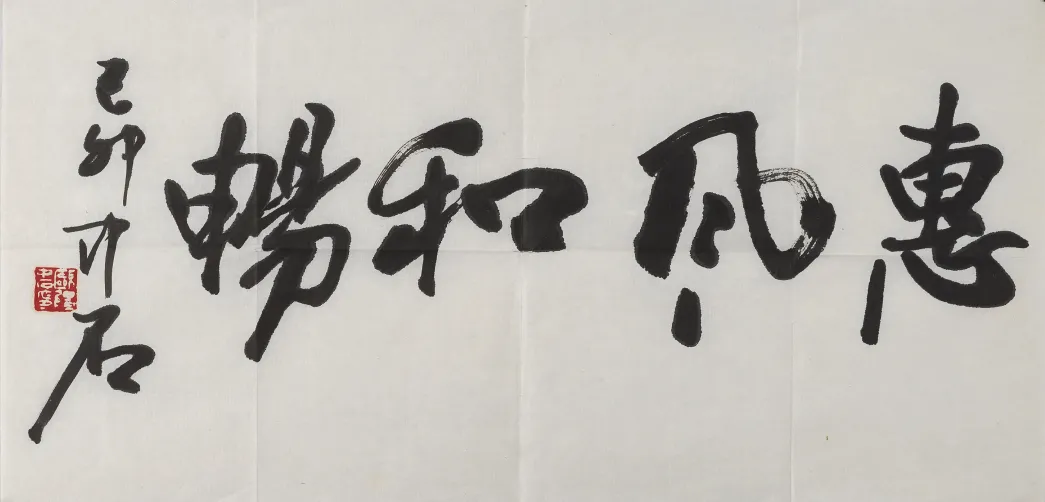 惠風和暢
己卯 石